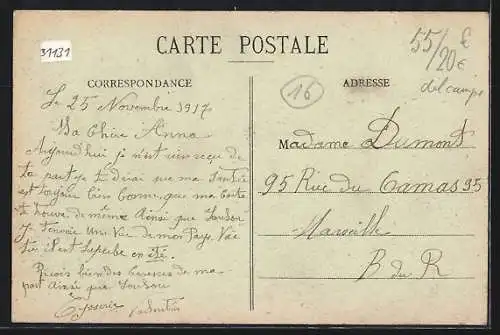 31131
CARTE POSTALE
55/20€
delcampe
CORRESPONDANCE
16
ADRESSE
Le 25 Novembre 1917
Ma Chère Anna
Aujourdhui je n'ai rien reçu de
ta part je te dirai que ma Santé
est toujour bien bonne, que ma Carte
te trouve de même Ainsi que Loulou
Je t'envoie Une Vue de mon Pays, Vue
il est Superbe en été.
Reçois bien des Caresses de ma
part Ainsi que Loulou
Valentin
Madame Dumont
95 Rue du Camas 95
Marseille
B du R